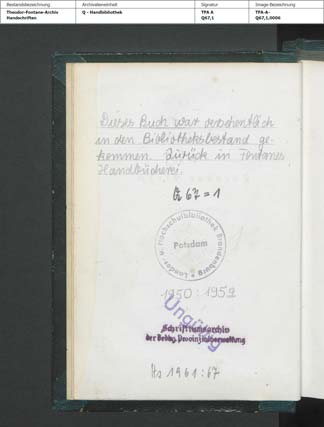 Bestandsbezeichnung Archivaleinheit Signatur Image-Bezeichnung
Theodor-Fontane-Archiv Q - Handbibliothek TFA A TFA-A-
Handschriften Q67,1 Q67,1,0006
Dieses Buch war versehentlich
in den Bibliotheksbestand ge-
kommen. Zurück in Fontanes
Handbücherei.
Q 67=1
Landes- u. Hochschulbibliothek Brandenburg
Potsdam
1950:1952
Ungültig
Schriftumsarchiv
der Brdbg. Provinzialverwaltung
Hs 1961:67